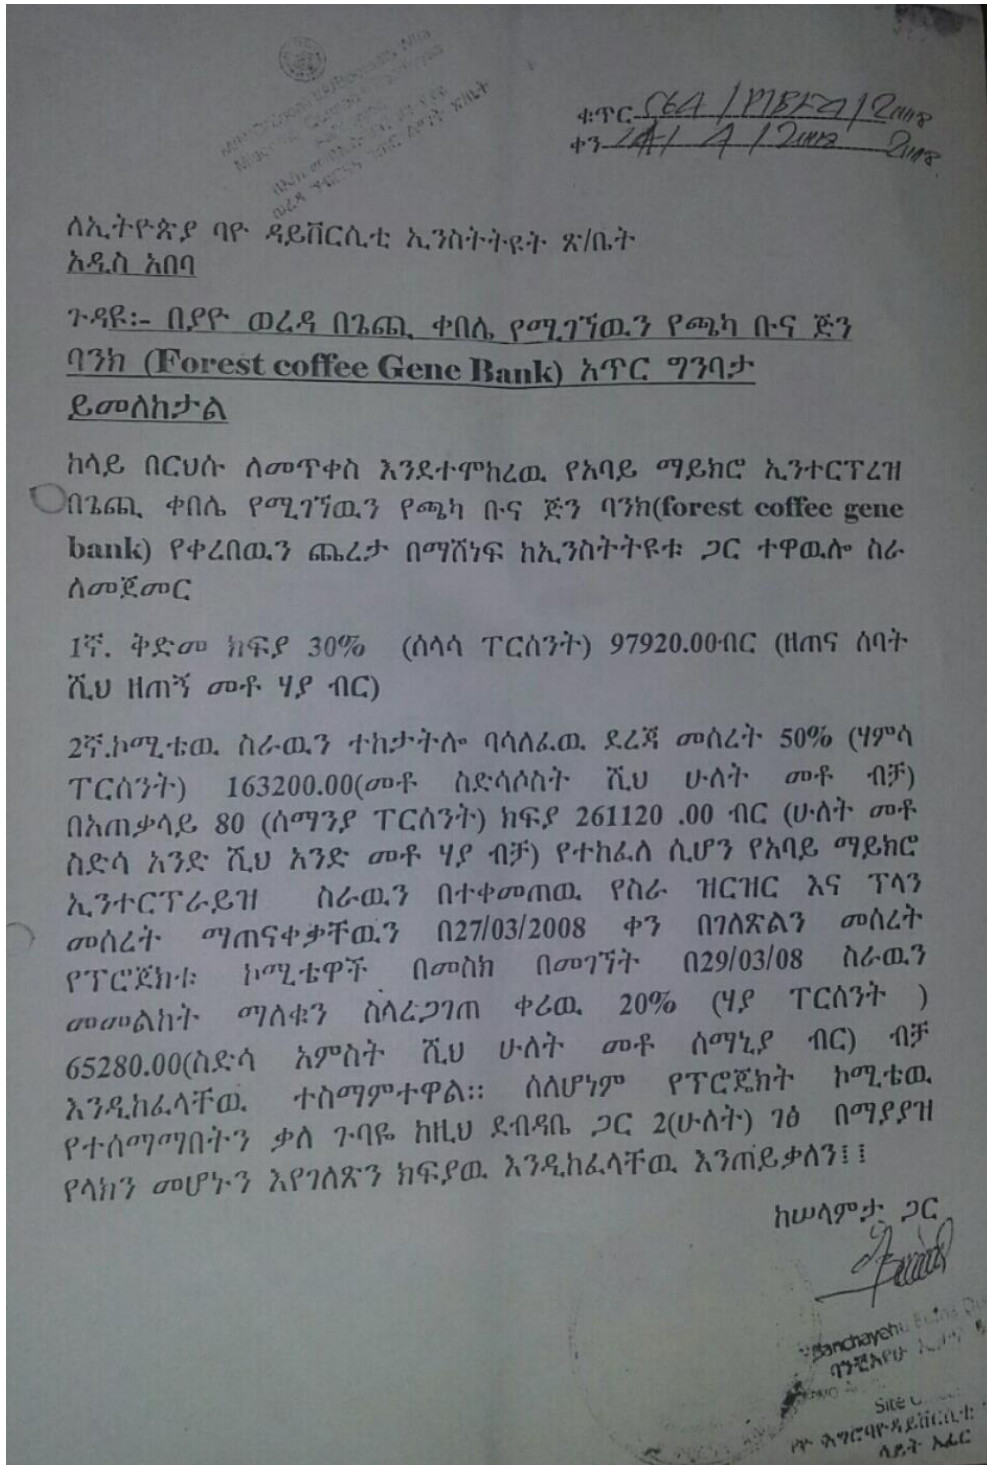 ቁጥር
ቀን
ለኢትዮጵያ ባዮ ዳይቨርሲቲ ኢንስትትዩት ጽ/ቤት
አዲስ አበባ
ጉዳዩ፡- በያዮ ወረዳ በጌጪ ቀበሌ የሚገኘዉን የጫካ ቡና ጅን
ባንክ (Forest coffee Gene Bank) አጥር ግንባታ
ይመለከታል
ከላይ በርህሱ ለመጥቀስ እንደተሞከረዉ የአባይ ማይክሮ ኢንተርፕረዝ
በጌጪ ቀበሌ የሚገኘዉን የጫካ ቡና ጅን ባንክ(forest coffee gene
bank) የቀረበዉን ጨረታ በማሸነፍ ከኢንስትትዩቱ ጋር ተዋዉሎ ስራ
ለመጀመር
1ኛ. ቅድመ ክፍያ 30% (ሰላሳ ፐርሰንት) 97920.00ብር (ዘጠና ሰባት
ሺህ ዘጠኝ መቶ ሃያ ብር)
2ኛ.ኮሚቴዉ ስራዉን ተከታትሎ ባሳለፈዉ ደረጃ መሰረት 50% (ሃምሳ
ፐርሰንት) 163200.00(መቶ ስድሳሶስት ሺህ ሁለት መቶ ብቻ)
በአጠቃላይ 80 (ሰማንያ ፐርሰንት) ክፍያ 261120 .00 ብር (ሁለት መቶ
ስድሳ አንድ ሺህ አንድ መቶ ሃያ ብቻ) የተከፈለ ሲሆን የአባይ ማይክሮ
ኢንተርፕራይዝ ስራዉን በተቀመጠዉ የስራ ዝርዝር እና ፕላን
መሰረት ማጠናቀቃቸዉን በ27/03/2008 ቀን በገለጽልን መሰረት
የፕሮጀክቱ ኮሚቴዋች በመስክ በመገኘት በ29/03/08 ስራዉን
መመልከት ማለቁን ስላረጋገጠ ቀሪዉ 20% (ሃያ ፐርሰንት )
65280.00(ስድሳ አምስት ሺህ ሁለት መቶ ሰማኒያ ብር) ብቻ
እንዲከፈላቸዉ ተስማምተዋል፡፡ ስለሆነም የፕሮጄክት ኮሚቴዉ
የተሰማማበትን ቃለ ጉባዬ ከዚህ ደብዳቤ ጋር 2(ሁለት) ገፅ በማያያዝ
የላክን መሆኑን እየገለጽን ክፍያዉ እንዲከፈላቸዉ እንጠይቃለን፤፤
ከሠላምታ ጋር
Banchayehu
Site
ሳይት ኦፊሰር